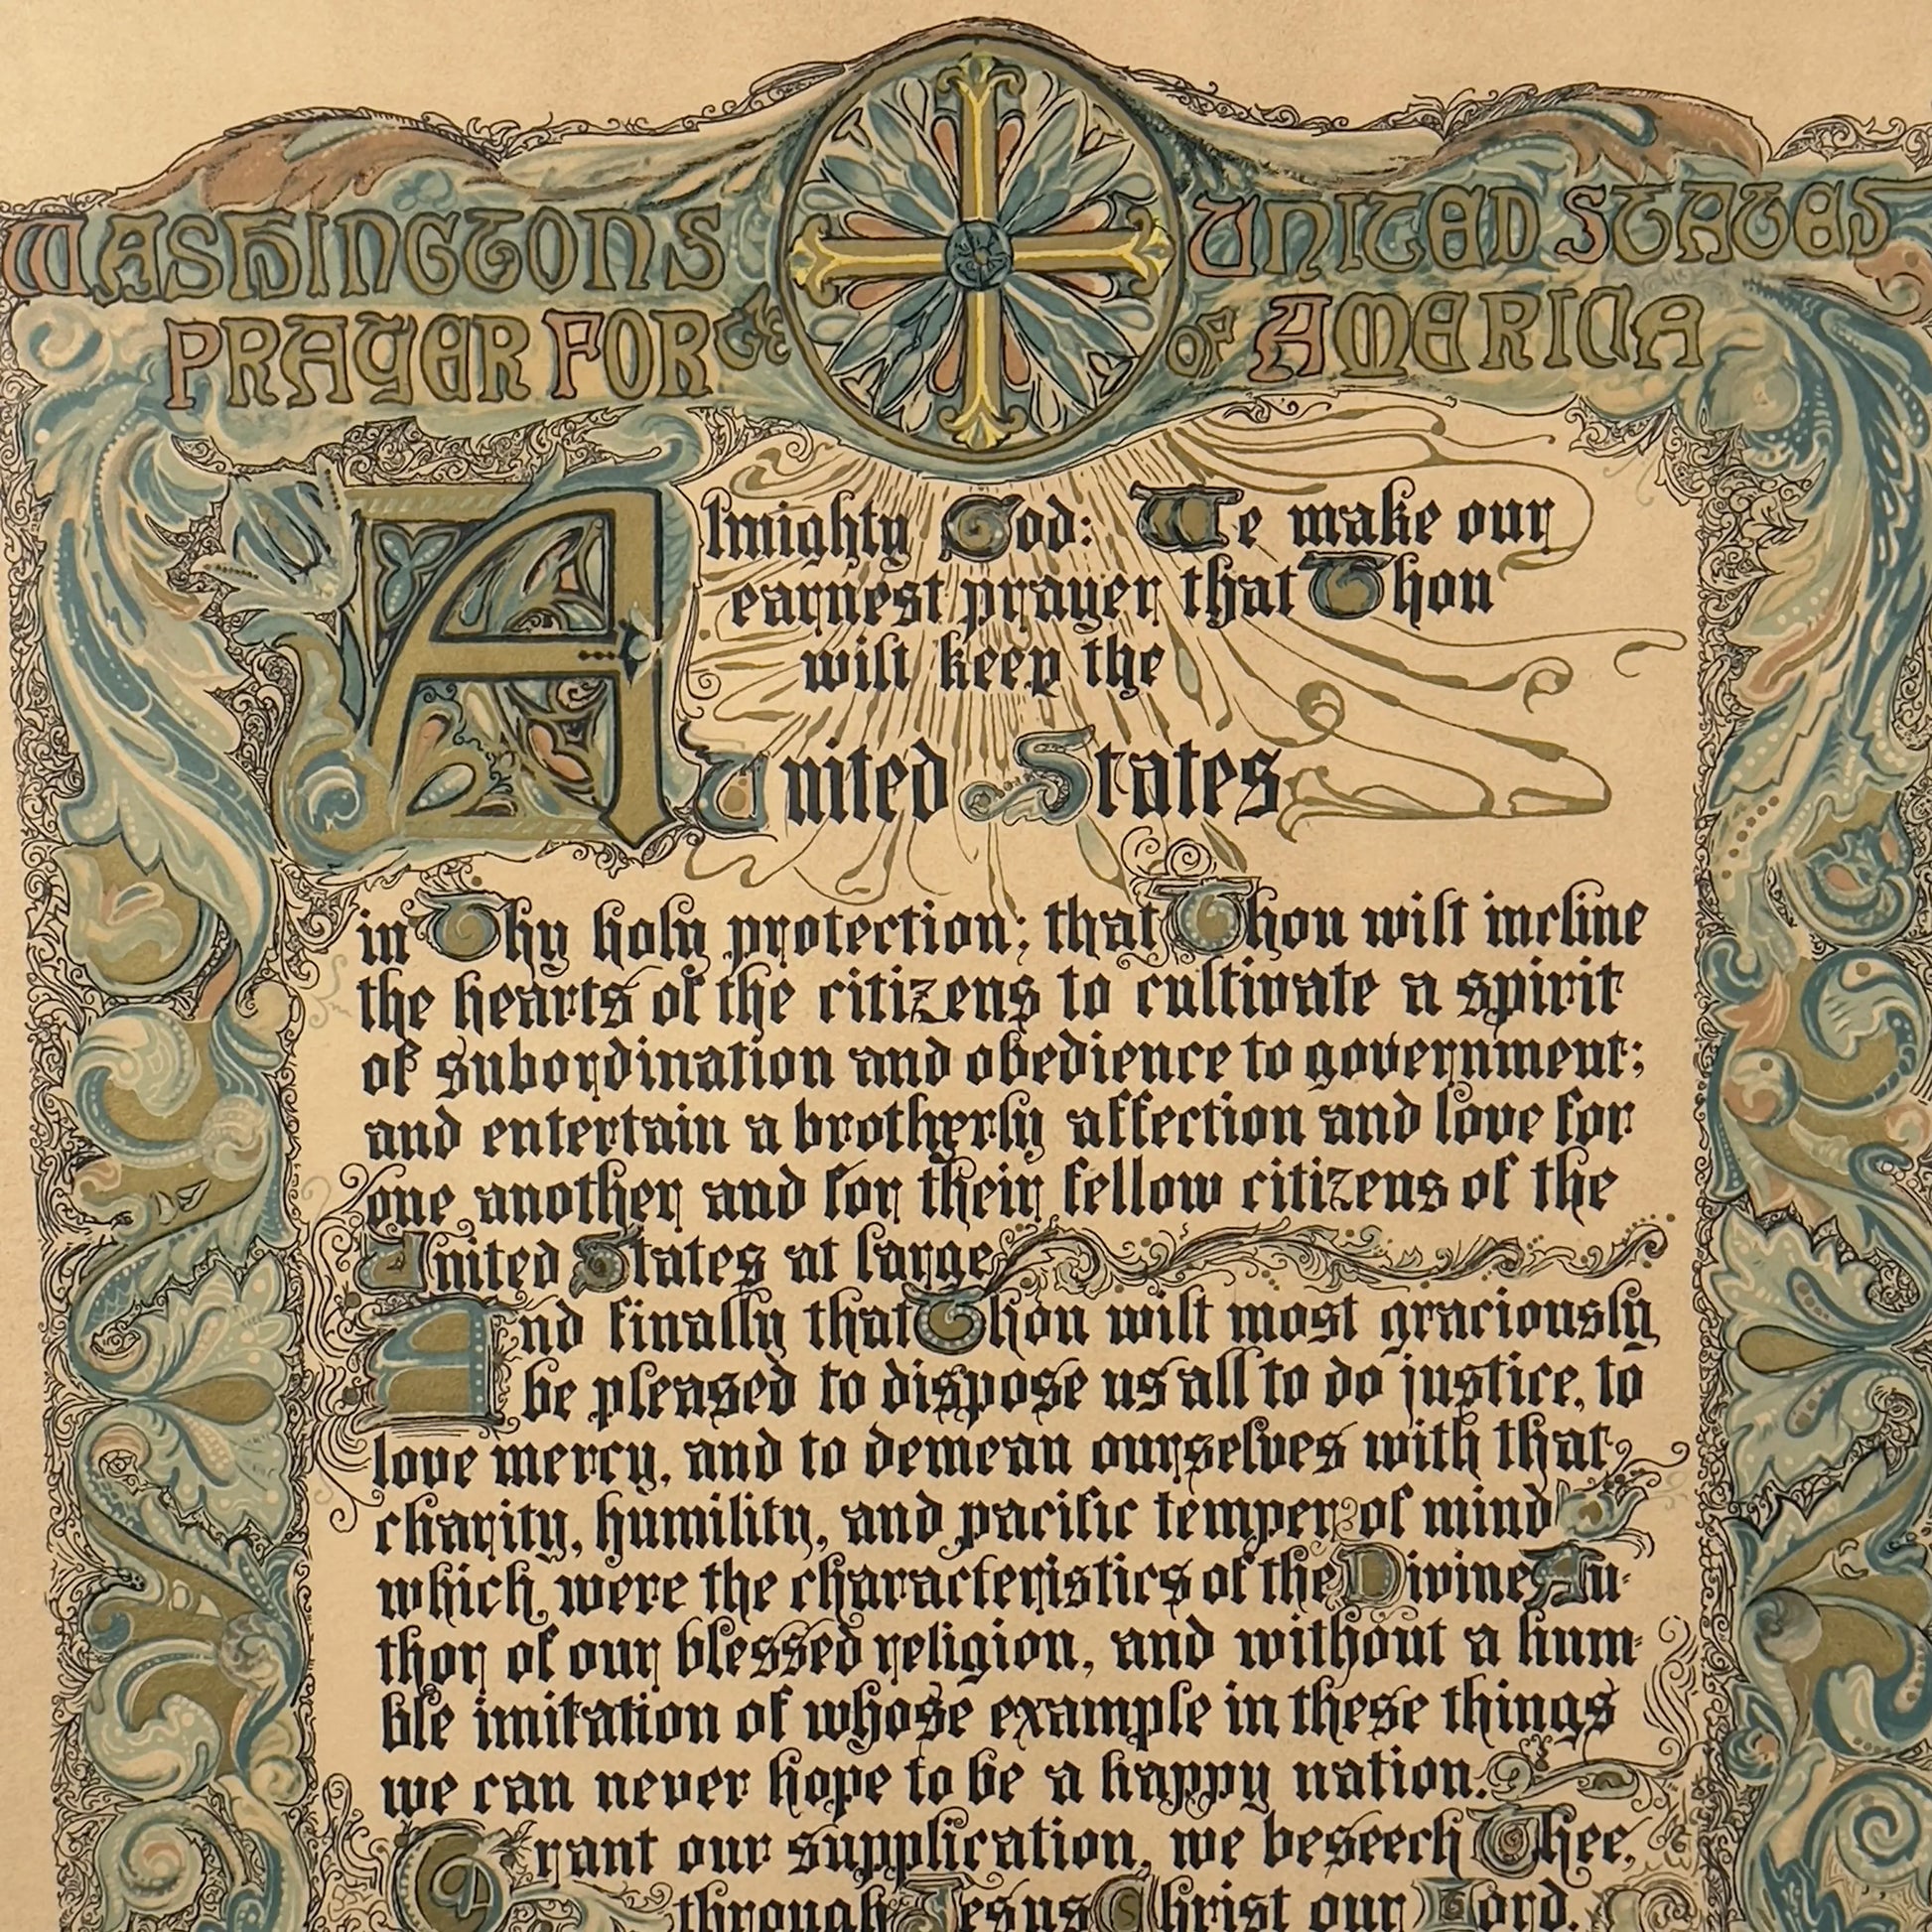 WASHINGTONS
PRAYER FOR THE
UNITED STATES
OF AMERICA
Almighty God: We make our
earnest prayer that Thou
wilt keep the
United States
in Thy holy protection; that Thou wilt incline
the hearts of the citizens to cultivate a spirit
of subordination and obedience to government;
and entertain a brotherly affection and love for
one another and for their fellow citizens of the
United States at large
And finally that Thou wilt most graciously
be pleased to dispose us all to do justice, to
love mercy, and to demean ourselves with that
charity, humility, and pacific temper of mind
which were the characteristics of the Divine Au-
thor of our blessed religion, and without a hum-
ble imitation of whose example in these things
we can never hope to be a happy nation.
Grant our supplication, we beseech Thee,
through Jesus Christ our Lord.